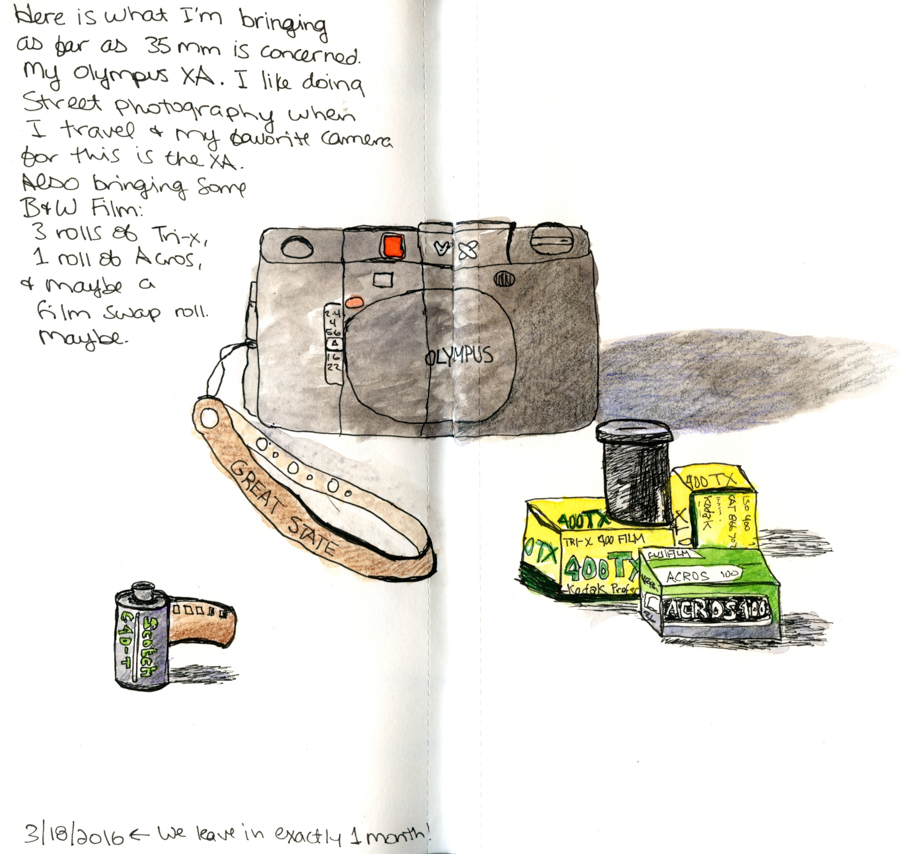 Here is what I'm bringing
as far as 35mm is concerned.
My Olympus XA. I like doing
Street photography when
I travel & my favorite camera
for this is the XA.
Also bringing some
B&W Film:
3 rolls of Tri-x,
1 roll of Acros,
& maybe a
film swap roll.
Maybe.
XA
2.8
4
5.6
8
16
22
OLYMPUS
GREAT STATE
400TX
400TX
TRI-X 400 FILM
400TX
Kodak Profe
OTX
Kodak
ISO 400
FUJIFILM
ACROS 100
ACROS 100
Scotch
640-T
3/18/2016 ← We leave in exactly 1 month!